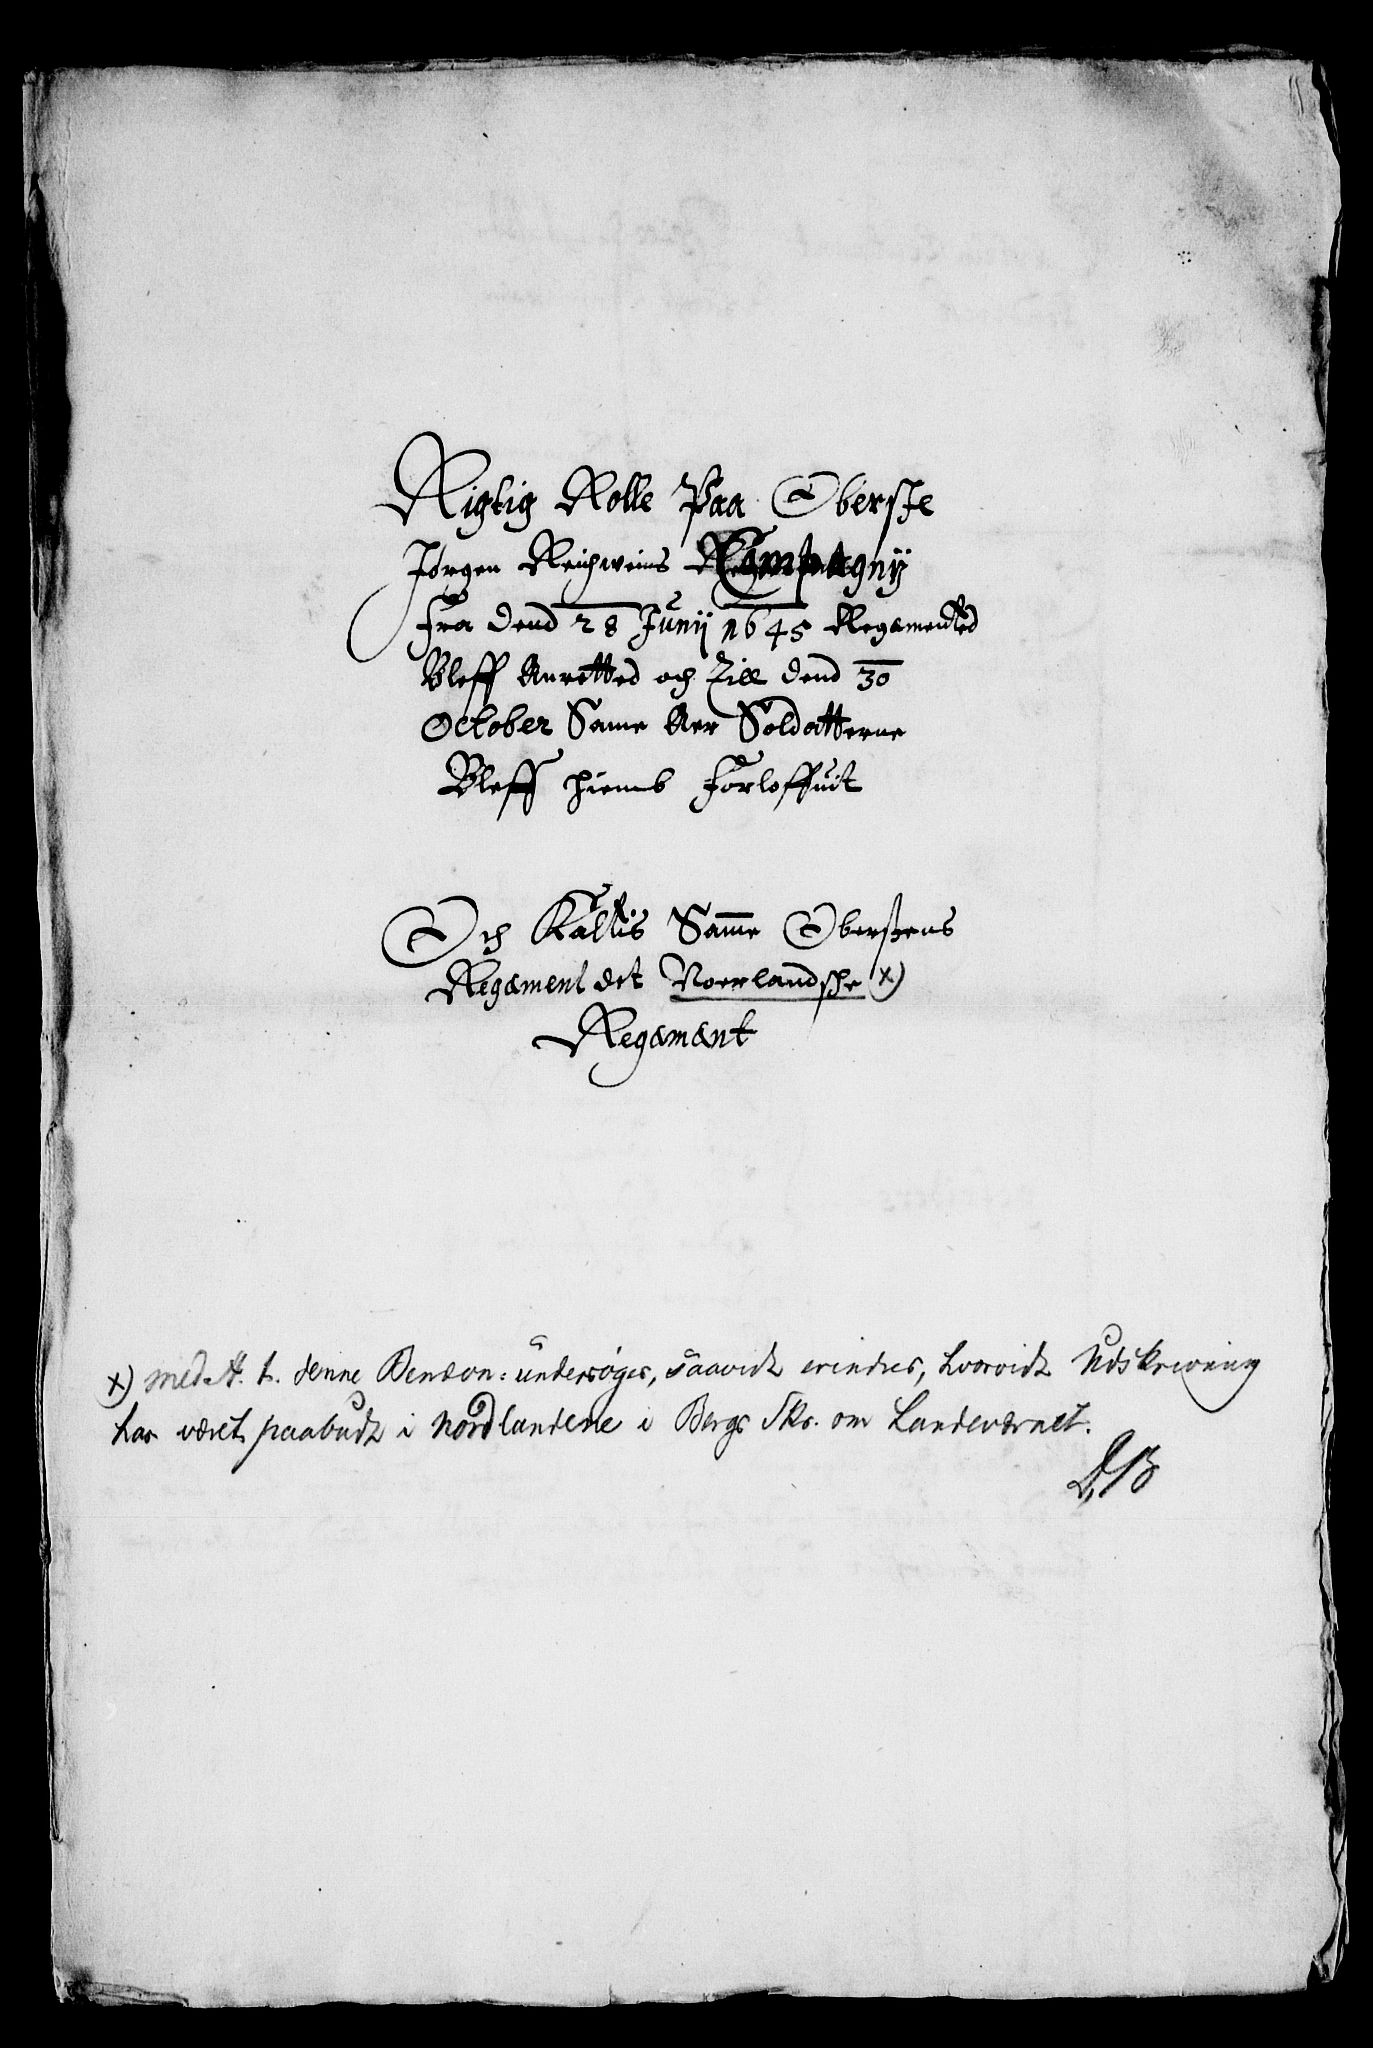 Rigtig Rolle Paa Oberste
Jørgen Reichweins Compagnij
Fra dend 28 Junij 1645 Regementted
Bleff Anretted och Till dend 30
October Same Aer Soldatterne
Bleff hiemb Forloffuit
Och Kaldis Samme Oberstens
Regæment det Noerlandsche x)
Regæmænt
x) med H. t. denne Benævn: undersøges, saavidt erindres, hvorvidt Udskrivning
har været paabudt i Nordlandene i Bergs Skr. om Landeværnet.